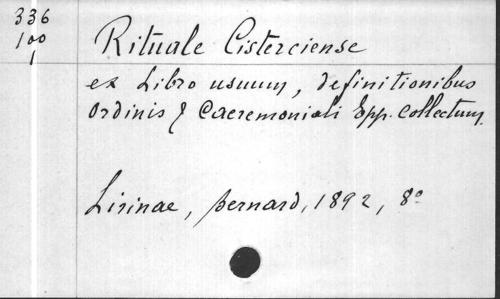 336
100
1
Rituale Cisterciense
ex Libro usuum, definitionibus
Ordinis & Caeremoniali Epp. collectum.
Lirinae, Bernard, 1892, 8º